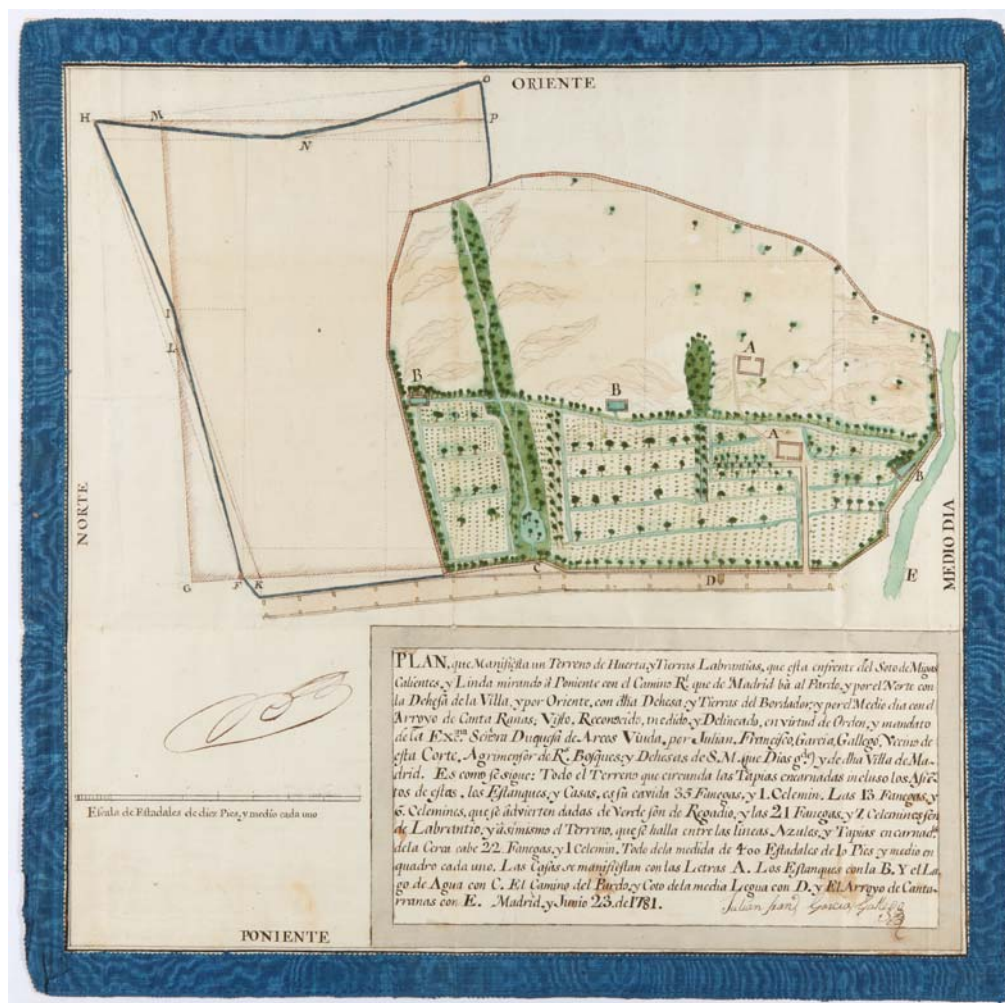 ORIENTE
H
M
N
O
P
I
L
A
B
B
A
B
NORTE
MEDIO DIA
G
F
K
C
D
E
PLAN, que Manifiesta un Terreno de Huerta, y Tierras Labrantias, que esta enfrente del Soto de Migas
Calientes, y Linda mirando â Poniente con el Camino Rl. que de Madrid bà al Pardo, y por el Norte con
la Dehesa de la Villa, y por Oriente, con dha Dehesa, y Tierras del Bordador, y por el Medio dia con el
Arroyo de Canta Ranas; Visto, Reconocido, medido, y Delineado, en virtud de Orden, y mandato
de la Exma. Señora Duquesa de Arcos Viuda, por Julian, Francisco, Garcia, Gallego, Vecino de
esta Corte, Agrimensor de Rs. Bosques, y Dehesas de S.M. (que Dios gde.) y de dha Villa de Ma-
drid. Es como se sigue: Todo el Terreno que circunda las Tapias encarnadas incluso los Asie-
tos de estas, los Estanques, y Casas, es su cavida 35 Fanegas, y 1. Celemin. Las 13 Fanegas, y
6. Celemines, que se advierten dadas de Verde són de Regadio, y las 21 Fanegas, y 7. Celemines són
de Labrantio, y ásimismo el Terreno, que se halla entre las lineas Azules, y Tapias encarnads.
de la Cerca cabe 22 Fanegas, y 1 Celemin. Todo de la medida de 400 Estadales de 10 Pies y medio en
quadro cada uno. Las Casas se manifiestan con las Letras A. Los Estanques con la B. Y el La-
go de Agua con C. El Camino del Pardo, y Coto de la media Legua con D. y El Arroyo de Canta-
rranas con E. Madrid, y Junio 23. de 1781.
Julian Fran.co Garcia Gallego
Escala de Estadales de diez Pies, y medio cada uno
PONIENTE